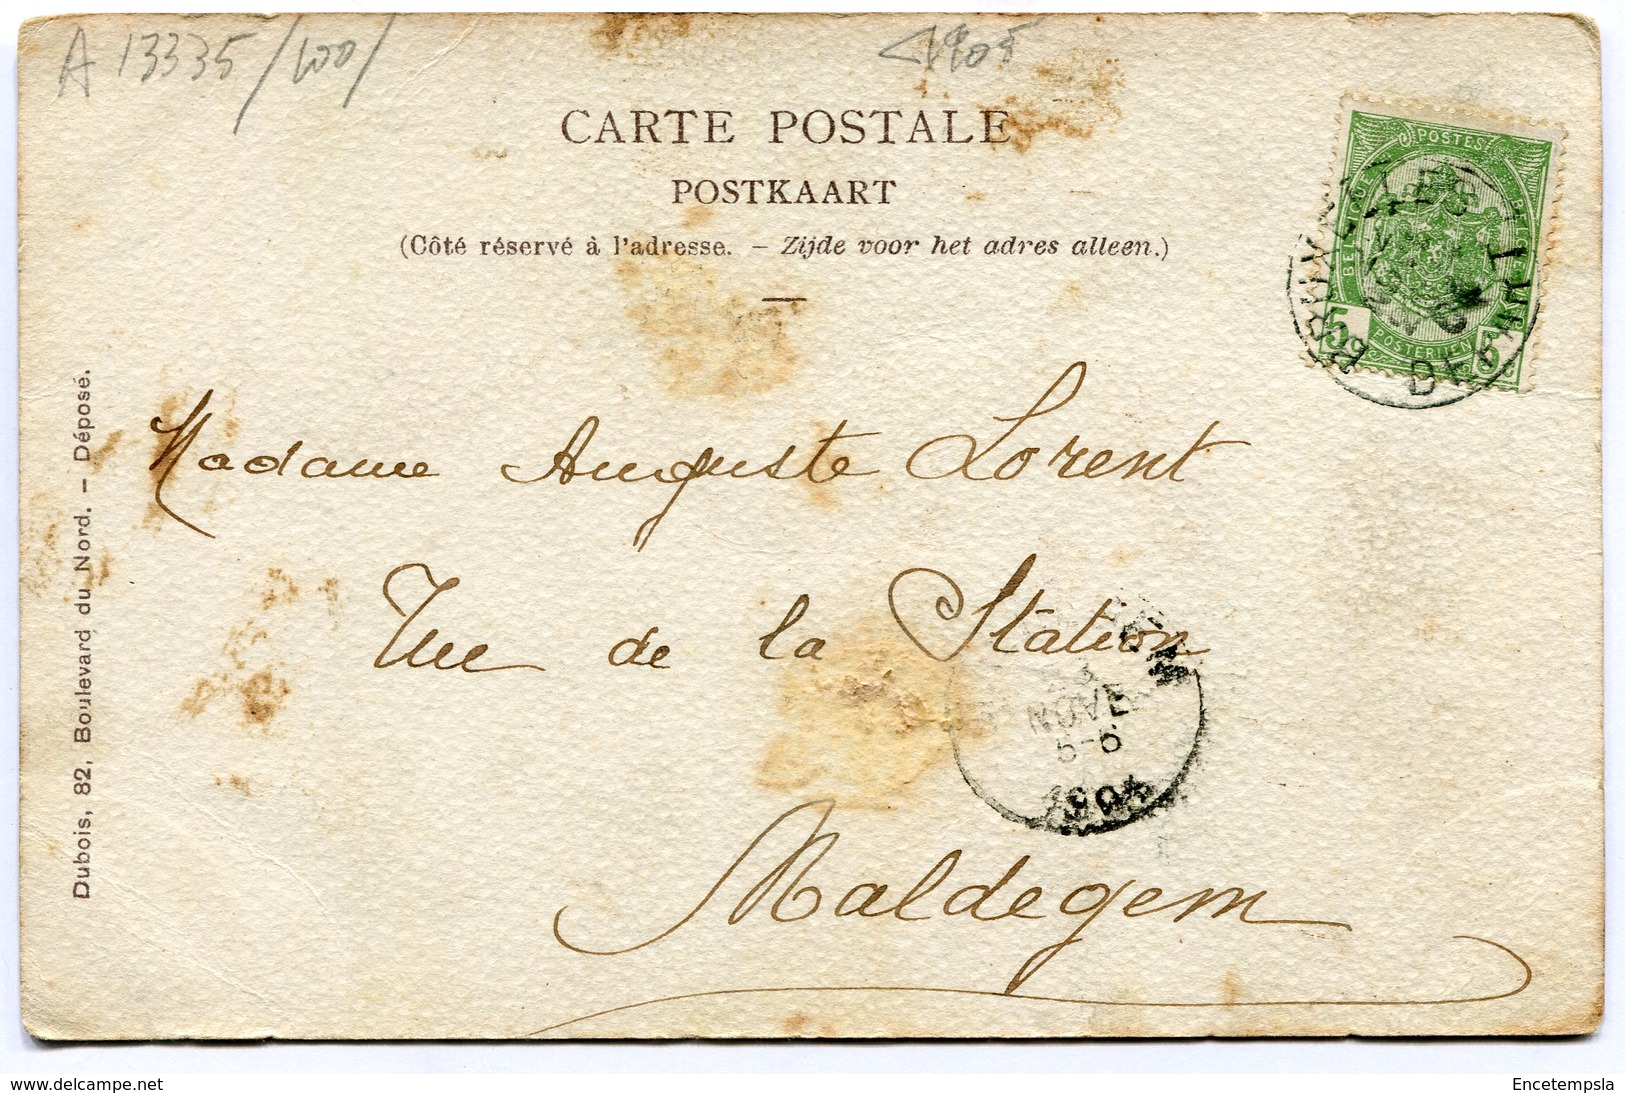 A 13335/100/
<1905
CARTE POSTALE
POSTKAART
(Côté réservé à l'adresse. – Zijde voor het adres alleen.)
POSTES
BELGIQUE
BELGIE
POSTERIJEN
5c 5c
BRUXELLES
DEPART
Madame Auguste Lorent
Rue de la Station
Maldegem
NOVE
5-6
1904
Dubois, 82, Boulevard du Nord. – Déposé.
delcampe.net
Encetempsla